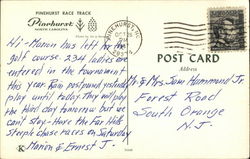 PINEHURST RACE TRACK
Pinehurst
NORTH CAROLINA
POST CARD
Address
Hi - Marion has left for the
golf course. 234 ladies are
entered in the tournament
this year. Rain postponed yesterday's
play until today. They will play
the final day tomorrow but we
can't stay - Have the Far Hills
Steeple chase races on Saturday
Marion & Ernest J.
Mr & Mrs. Sam Hammond Jr.
Forest Road
South Orange
N.J.
K